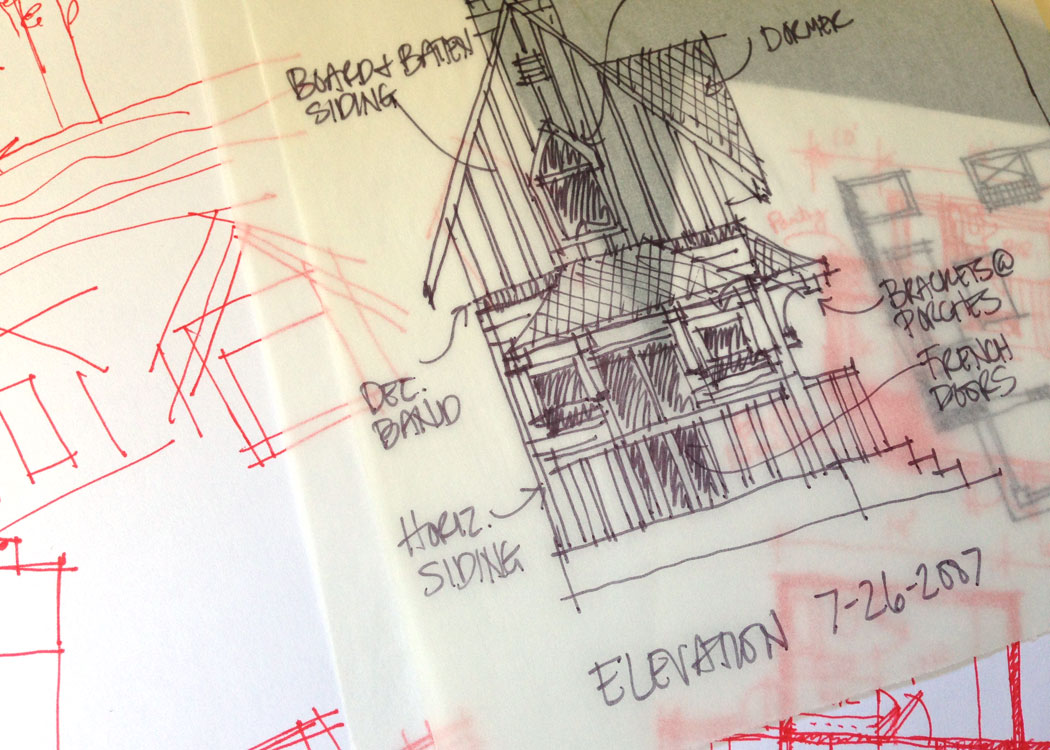 BOARD & BATTEN
SIDING
DORMER
BRACKETS @
PORCHES
FRENCH
DOORS
DEC.
BAND
HORIZ.
SIDING
ELEVATION 7-26-2007
Pantry
10'